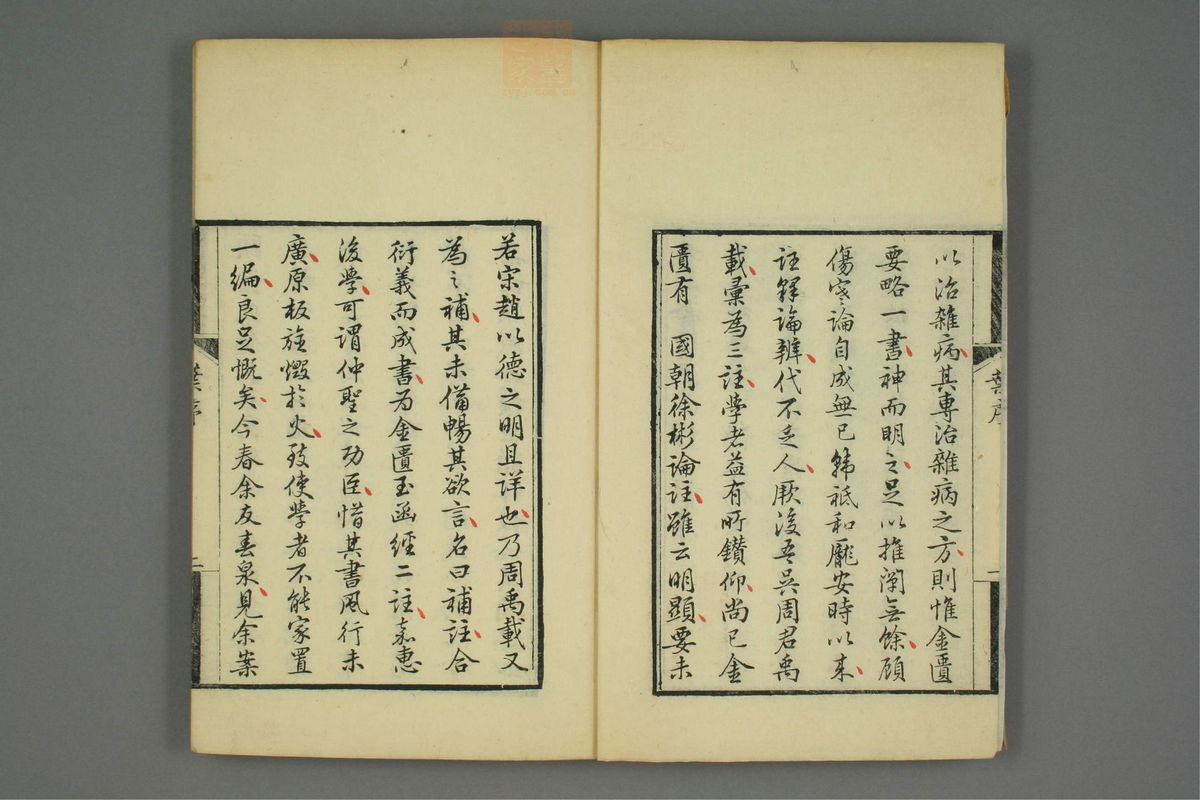 以治雜病其專治雜病之方則惟金匱
要略一書神而明之足以推闡無餘顧
傷寒論自成無已韓祗和龐安時以来
註釋論辨代不乏人厥後吾吳周君禹
載彙為三註學者益有所鑽仰尚已金
匱有　國朝徐彬論註雖云明顯要未
葉序
若宋趙以德之明且詳也乃周禹載又
為之補其未備暢其欲言名曰補註合
衍義而成書為金匱玉函經二註嘉惠
後學可謂仲聖之功臣惜其書風行未
廣原板旋燬於火致使學者不能家置
一編良足慨矣今春余友春泉見余案
葉序
二